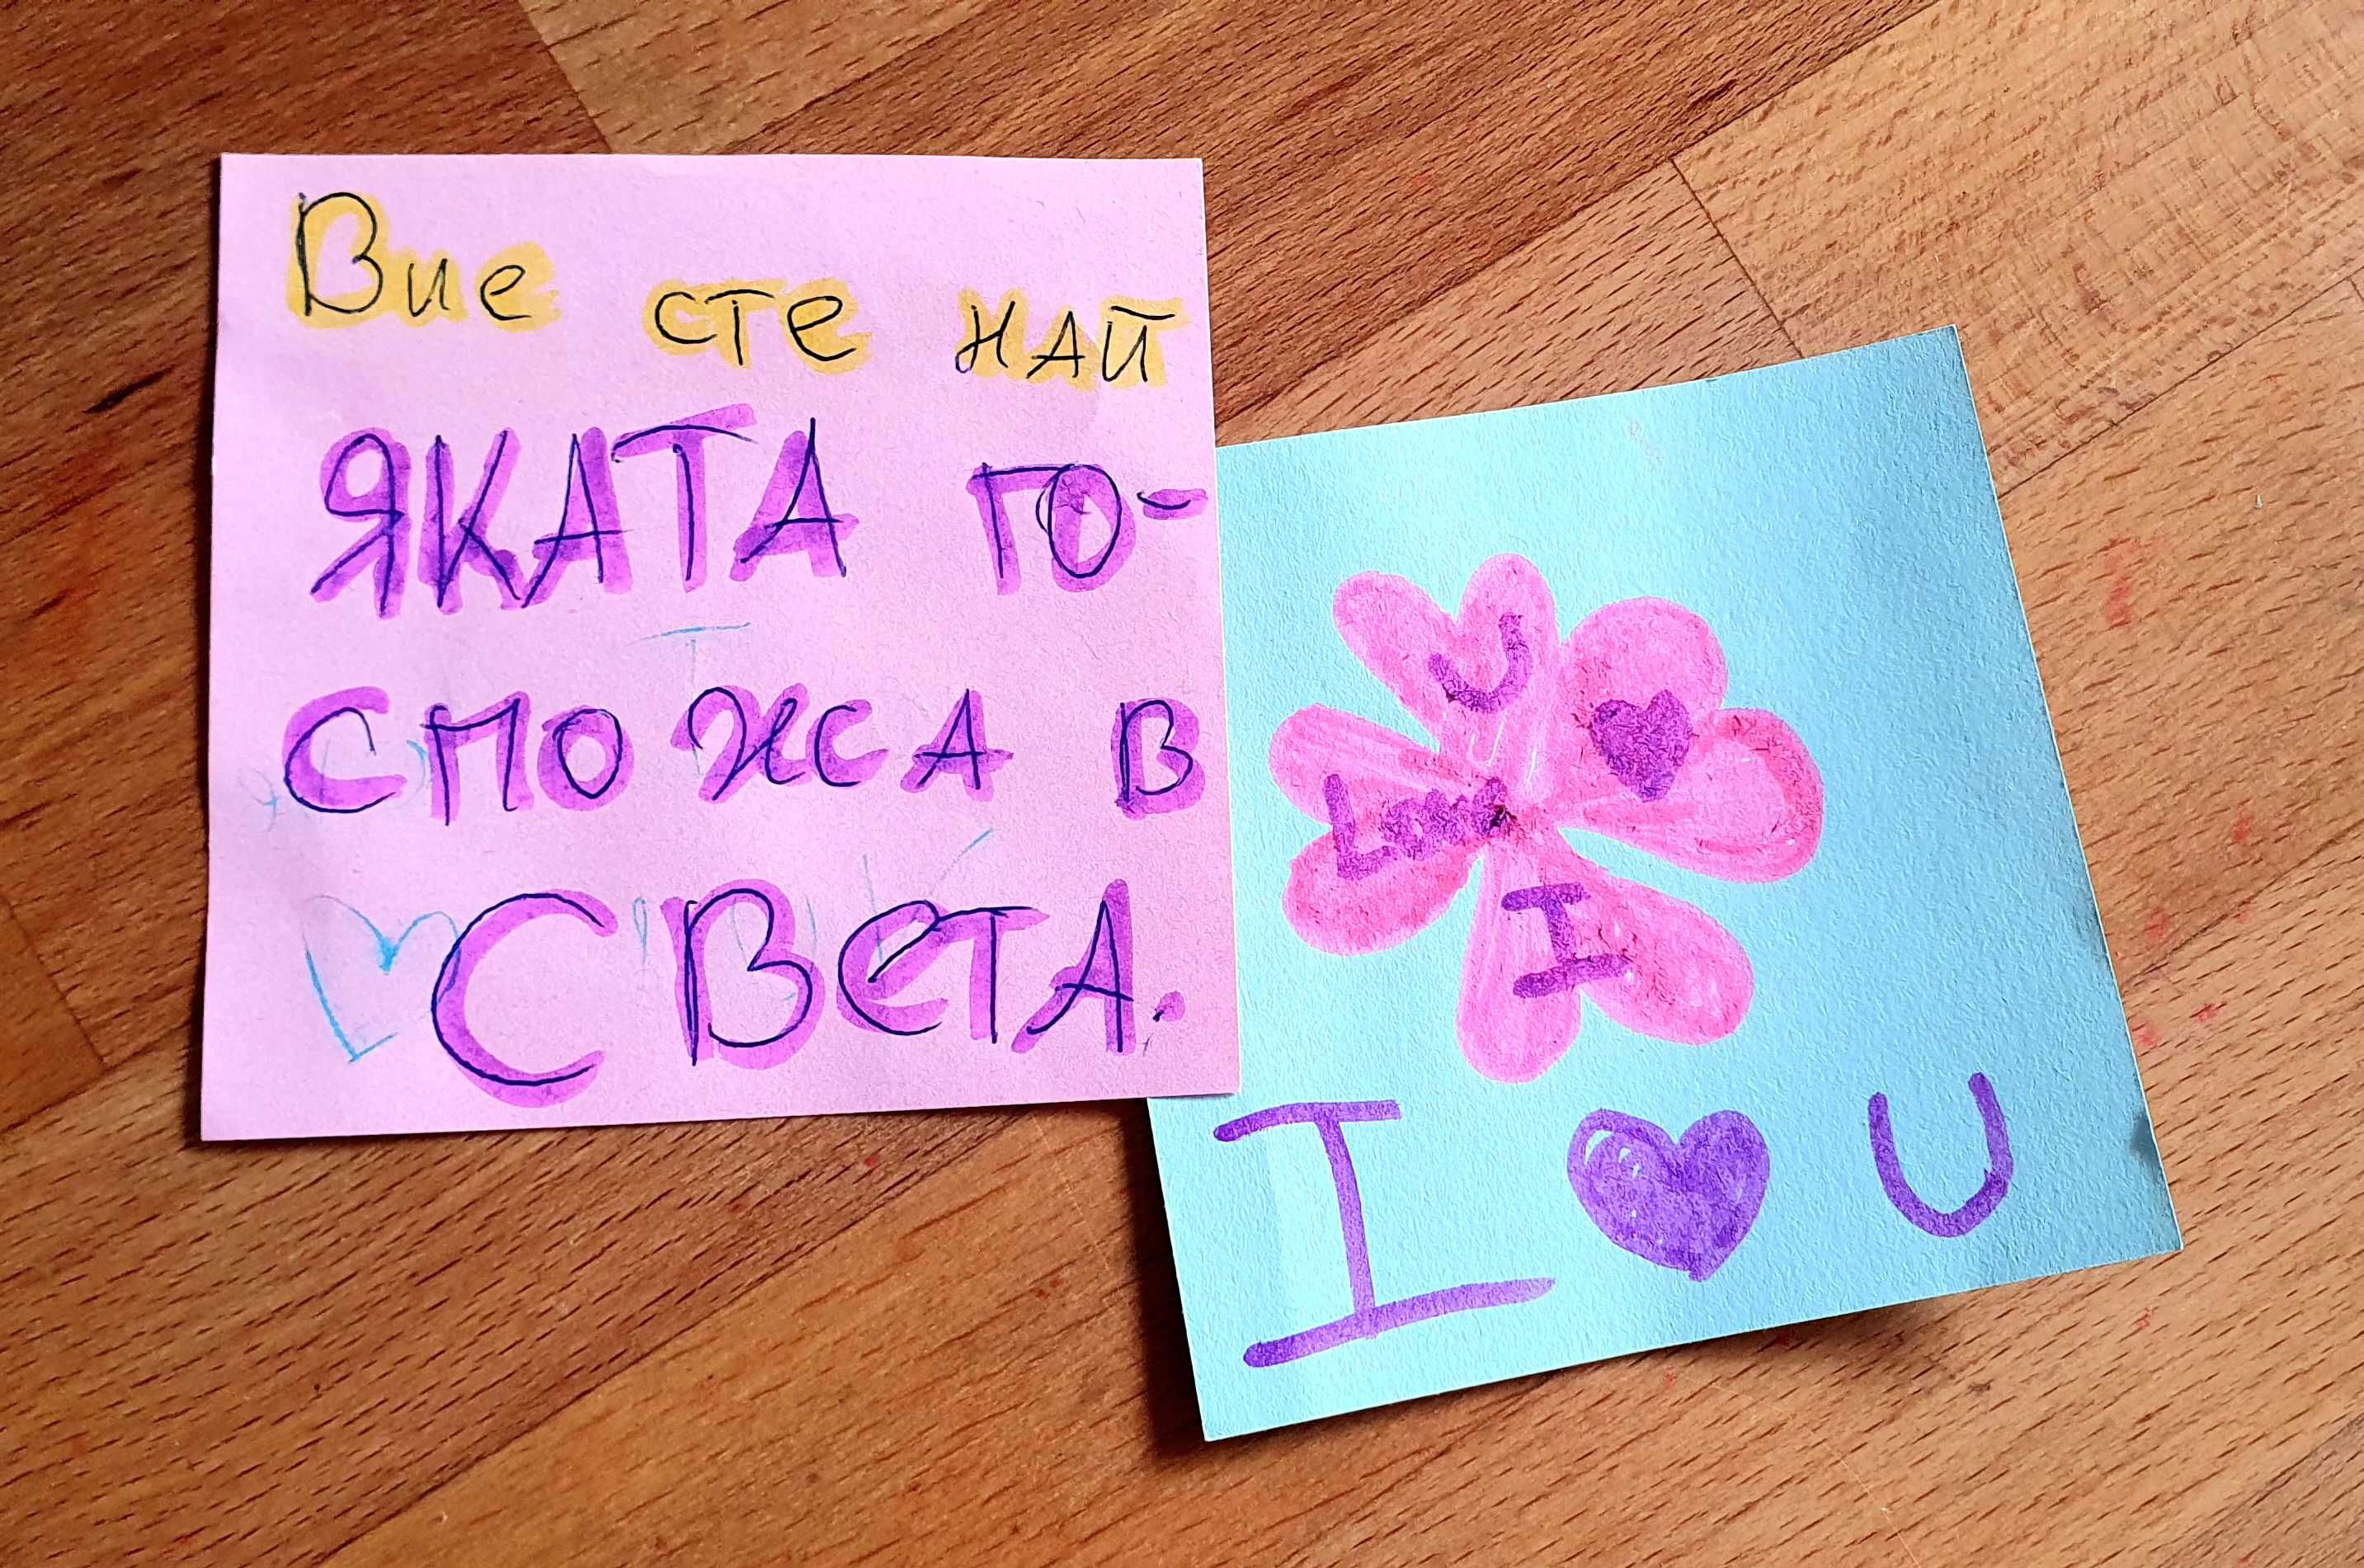 Вие сте най
ЯКАТА ГО-
СПОЖСА В
СВЕТА.
U
♥
Love
I
I ♥ U